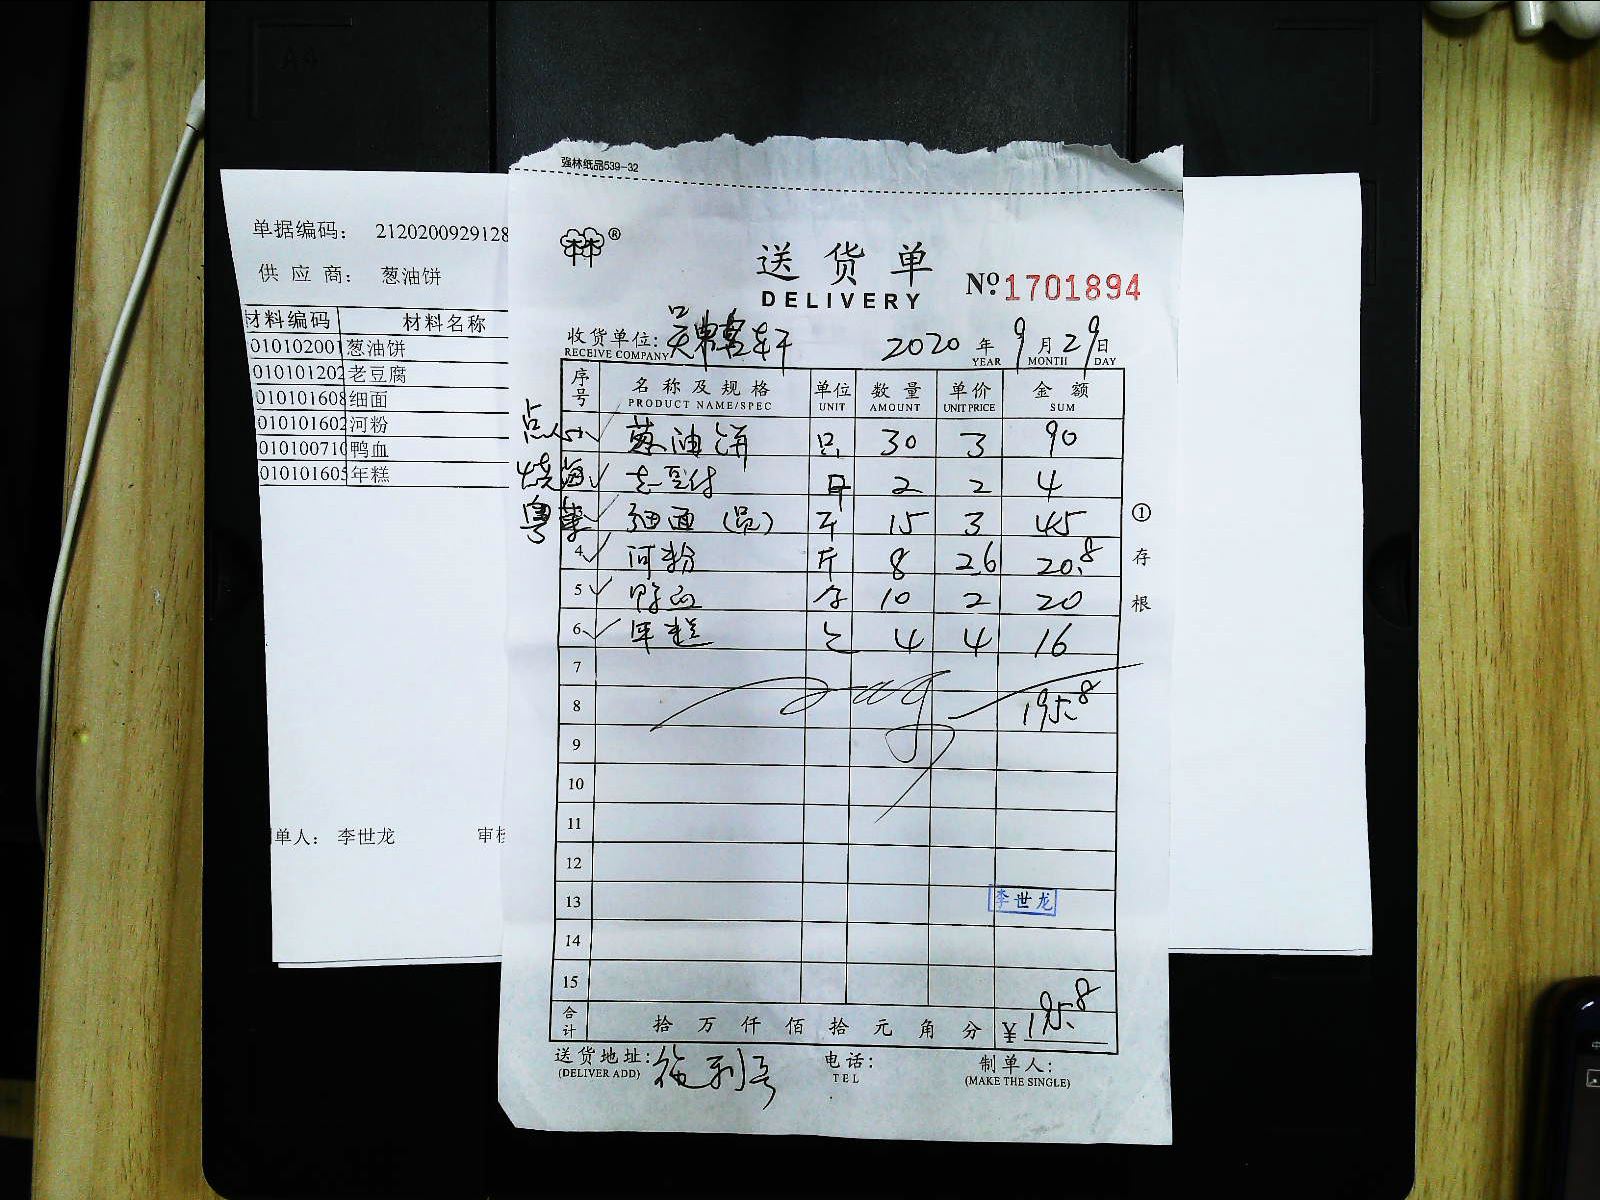 强林纸品539-32
单据编码： 2120200929128
供 应 商： 葱油饼
材料编码 材料名称
010102001 葱油饼
010101202 老豆腐
010101608 细面
010101602 河粉
010100710 鸭血
010101605 年糕
单人： 李世龙 审核
林 ®
送货单
DELIVERY
Nº 1701894
收货单位: 轩 2020 年 9 月 29 日
RECEIVE COMPANY YEAR MONTH DAY
序号 名称及规格 单位 数量 单价 金额
PRODUCT NAME/SPEC UNIT AMOUNT UNIT PRICE SUM
点心 葱油饼 只 30 3 90
烧海 老豆付 2 2 4
粤菜 细面 斤 15 3 45
4 河粉 斤 8 2.6 20.8
5 鸭血 10 2 20
6 年糕 4 4 16
7
8 195.8
9
10
11
12
13 李世龙
14
15
合计 拾 万 仟 佰 拾 元 角 分 ¥ 195.8
①存根
送货地址: 电话: 制单人:
(DELIVER ADD) TEL (MAKE THE SINGLE)